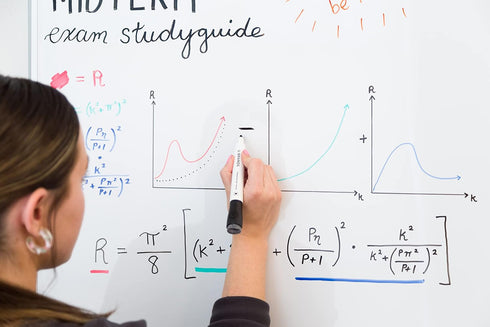 MIDTERM
exam studyguide
be
= R
(K²+π²)²
(Pπ/P+1)²
·
K²
K²+(Pπ²/P+1)²
R
R
R
+
K
K
K
R = π²/8 [(K²+ + (Pπ/P+1)² · K²/K²+(Pπ²/P+1)²]